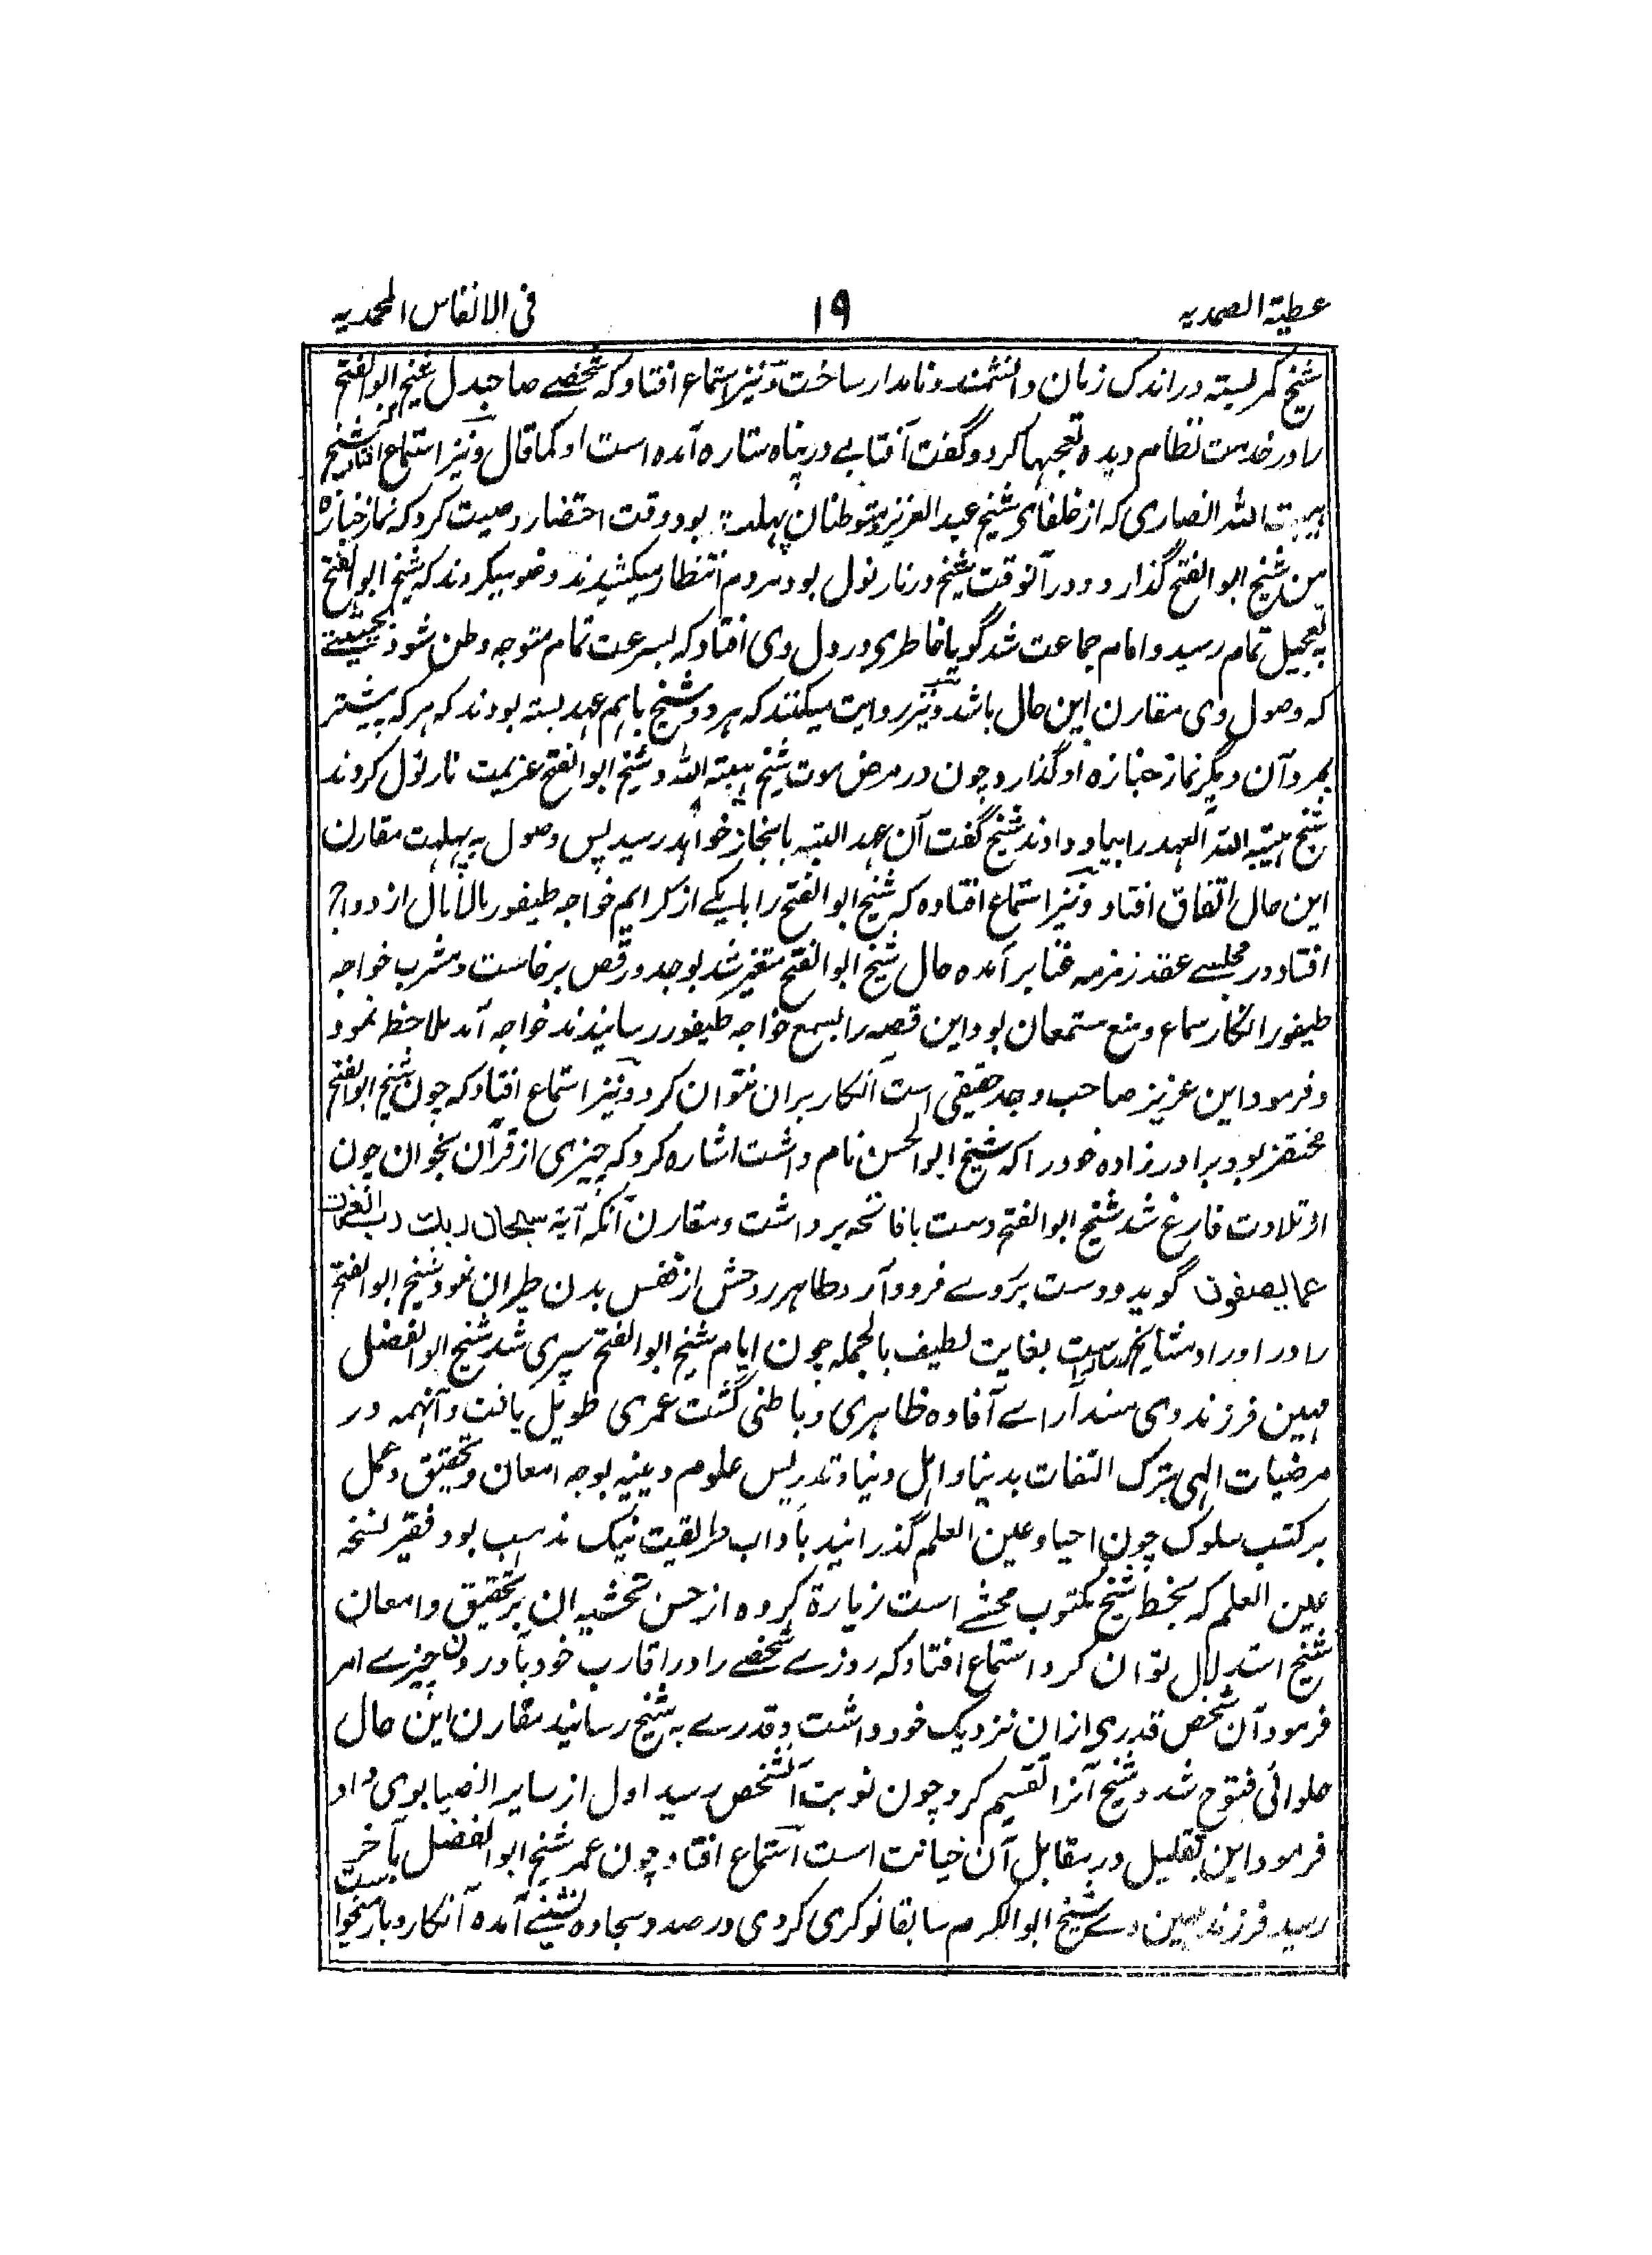 عطیة الصمدیه ۱۹ فی الانفاس المحمدیه
شیخ کمر بسته در اندک زمان دانشمند و نامدار ساخت و نیز استماع افتاد که شخصے صاحبدل شیخ ابوالفتح
را در خدمت نظام دیده تعجبها کرد و گفت آفتابے در پناه ستاره آمده است او کما قال و نیز استماع افتاد که شیخ
هیبت الله انصاری که از خلفای شیخ عبدالعزیز و متوطنان پهلت بود وقت احتضار وصیت کرد که نماز جنازه
من شیخ ابوالفتح گذارد و در آنوقت شیخ در نارنول بود مردم انتظار میکشیدند وضو میکردند که شیخ ابوالفتح
به تعجیل تمام رسید و امام جماعت شد گویا خاطری در دل وی افتاد که بسرعت تمام متوجه وطن شود بحیثیتے
که وصول وی مقارن این حال باشد و نیز روایت میکنند که هر دو شیخ باهم عهد بسته بودند که هر که پیشتر
بمرد آن دیگر نماز جنازه او گذارد چون در مرض موت شیخ هیبته الله و شیخ ابوالفتح عزیمت نارنول کردند
شیخ هیبته الله العهد را بیاد دادند شیخ گفت آن عهد البته بانجاز خواهد رسید پس وصول به پهلت مقارن
این حال اتفاق افتاد و نیز استماع افتاده که شیخ ابوالفتح را با یکے از کرایم خواجه طیفور بالا بال ازدواج
افتاد در مجلسے عقد زمزمه غنا برآمده حال شیخ ابوالفتح متغیر شد بوجد و رقص برخاست و مشرب خواجه
طیفور انکار سماع و منع مستمعان بود این قصه را بسمع خواجه طیفور رسانیدند خواجه آمد ملاحظ نمود
و فرمود این عزیز صاحب وجد حقیقی است انکار بران نتوان کرد و نیز استماع افتاد که چون شیخ ابوالفتح
محتضر بود برادرزاده خود را که شیخ ابوالحسن نام داشت اشاره کرد که چیزی از قرآن بخوان چون
از تلاوت فارغ شد شیخ ابوالفتح دست بافاتحه برداشت و مقارن آنکه آیة سبحان ربك رب العزة
عما یصفون گوید و دست بروے فرود آرد طاهر روحش از قفس بدن طیران نمود شیخ ابوالفتح
را در اوراد مشایخ رساله است بغایت لطیف بالجمله چون ایام شیخ ابوالفتح سپری شد شیخ ابوالفضل
مهین فرزند وی مسند آراے آفاده ظاهری و باطنی گشت عمری طویل یافت و آنهمه در
مرضیات الهی بترک التفات بدنیا و اهل دنیا و تدریس علوم دینیه بوجه امعان و تحقیق و عمل
بر کتب سلوک چون احیا و عین العلم گذرانید بآداب طریقت نیک مذهب بود فقیر نسخه
عین العلم که بخط شیخ مکتوب محشے است زیارة کرده از حسن تحشیه ان بر تحقیق و امعان
شیخ استدلال توان کرد استماع افتاد که روزے شخصے را در اقارب خود بآوردن چیزے امر
فرمود آن شخص قدری ازان نزدیک خود داشت و قدرے به شیخ رسانید مقارن این حال
حلوائی فتوح شد و شیخ آنرا تقسیم کرد چون نوبت آنشخص رسید اول از سایر انصبا بوی داد
فرمود این تقلیل در مقابل آن خیانت است استماع افتاد چون عمر شیخ ابوالفضل بآخر
رسید فرزند مهین وے شیخ ابوالکرم سابقا نوکری کردی در صدد سجاده نشینے آمده آنکاروبار میخواست